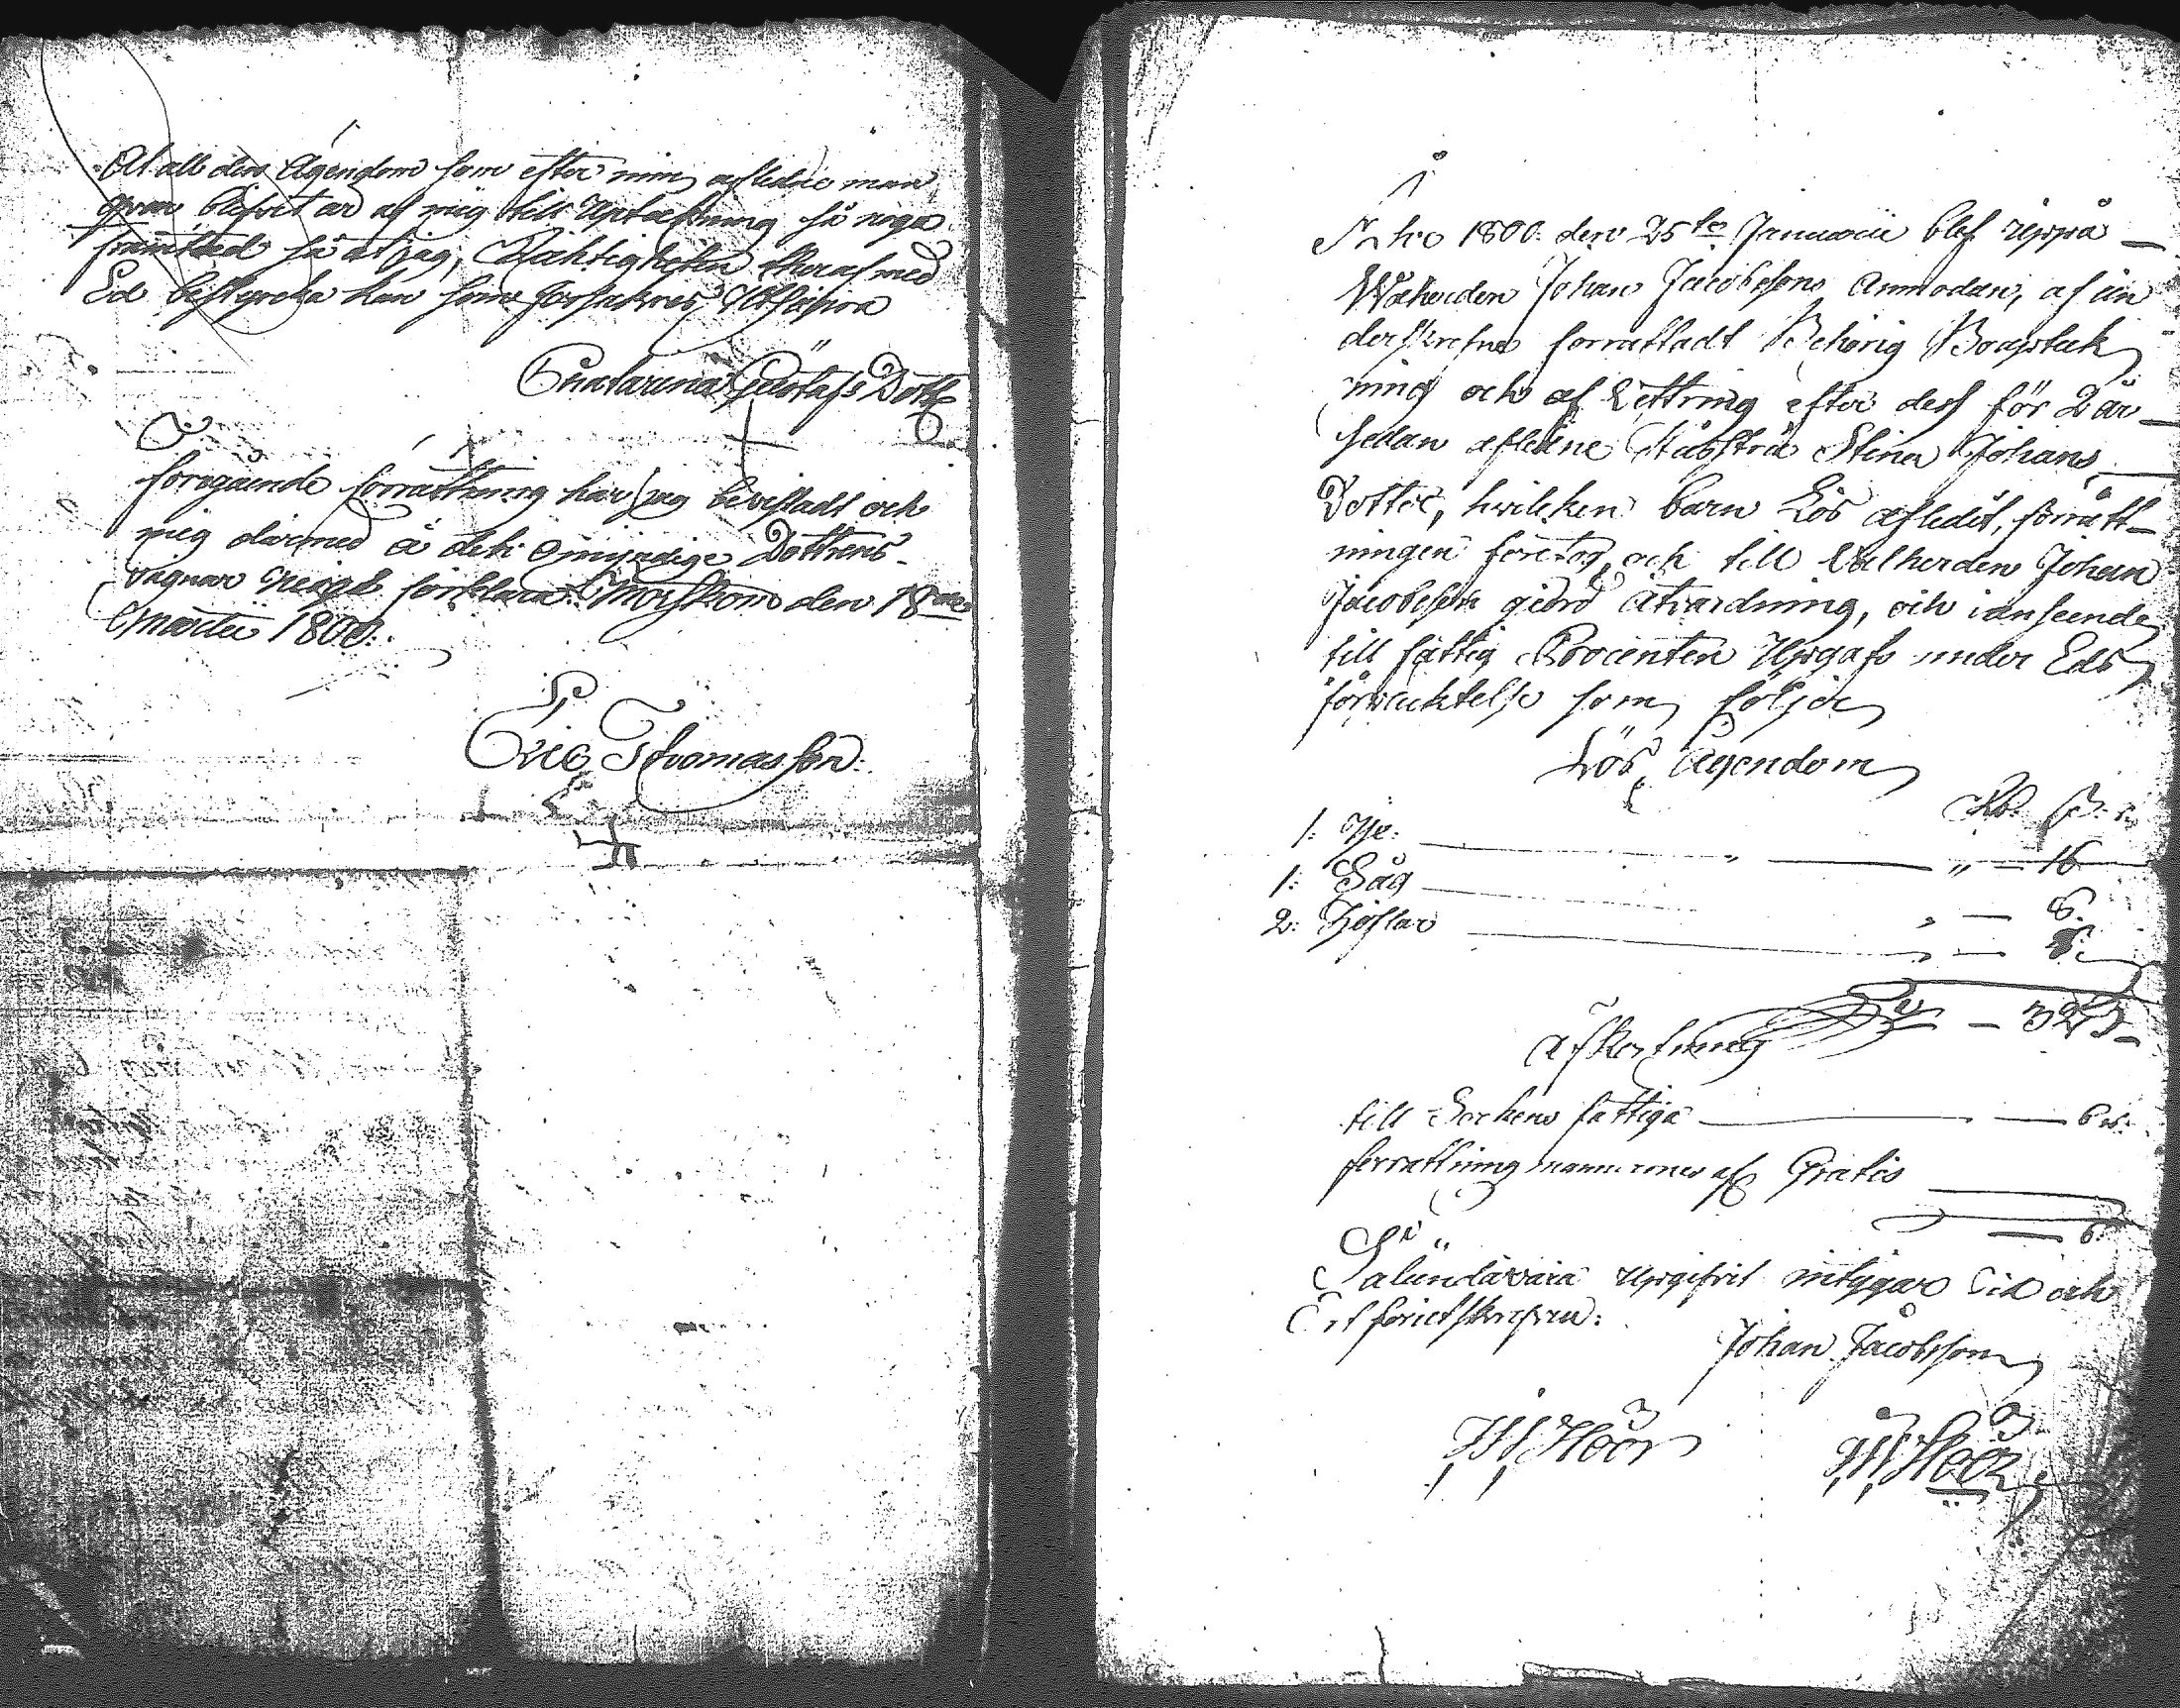 At all den Ägendom som efter min aflidne man
qvar blifvit är af mig till Uptekning så noga
framtedd så at jag, Richtigheten theraf med
Ed bestyrcka kan som försäkras Utsupra
Chatarina Gustafs Dotter
föregående förrättning har jag bevistadt och
mig därmed å dete omyndige Dottrens
vägnar Nögd förklarar Morskom den 18de
Martii 1800.
Eric Thomasson
A:hro 1800 den 25te Januarii blef uppå
Wälherden Johan Jacobssons Anmodan, af un
derskrefne förrättadt Behörig Bouptek
ning och af Vettring efter dess för 2 år
sedan aflidne Hustru Stina Johans
Dotter, hvilcken barn Lös afledit, förrätt-
ningen företog och till Välherden Johan
Jacobsson giord åtvardning, och i anseende
till fattig Procenten Upgafs under Eds
förpliktelse som följer
Lös Ägendom
Rd. ß. r.
1: Yxe. " " 16
1: Såg " 8.
2: Höflar " 8.
" 32
afkortning
till Sockens fattiga 6 rs.
förrättningsmannrones af Gratis
6.
Sålunda vara Upgifvit intygar
Johan Jacobsson